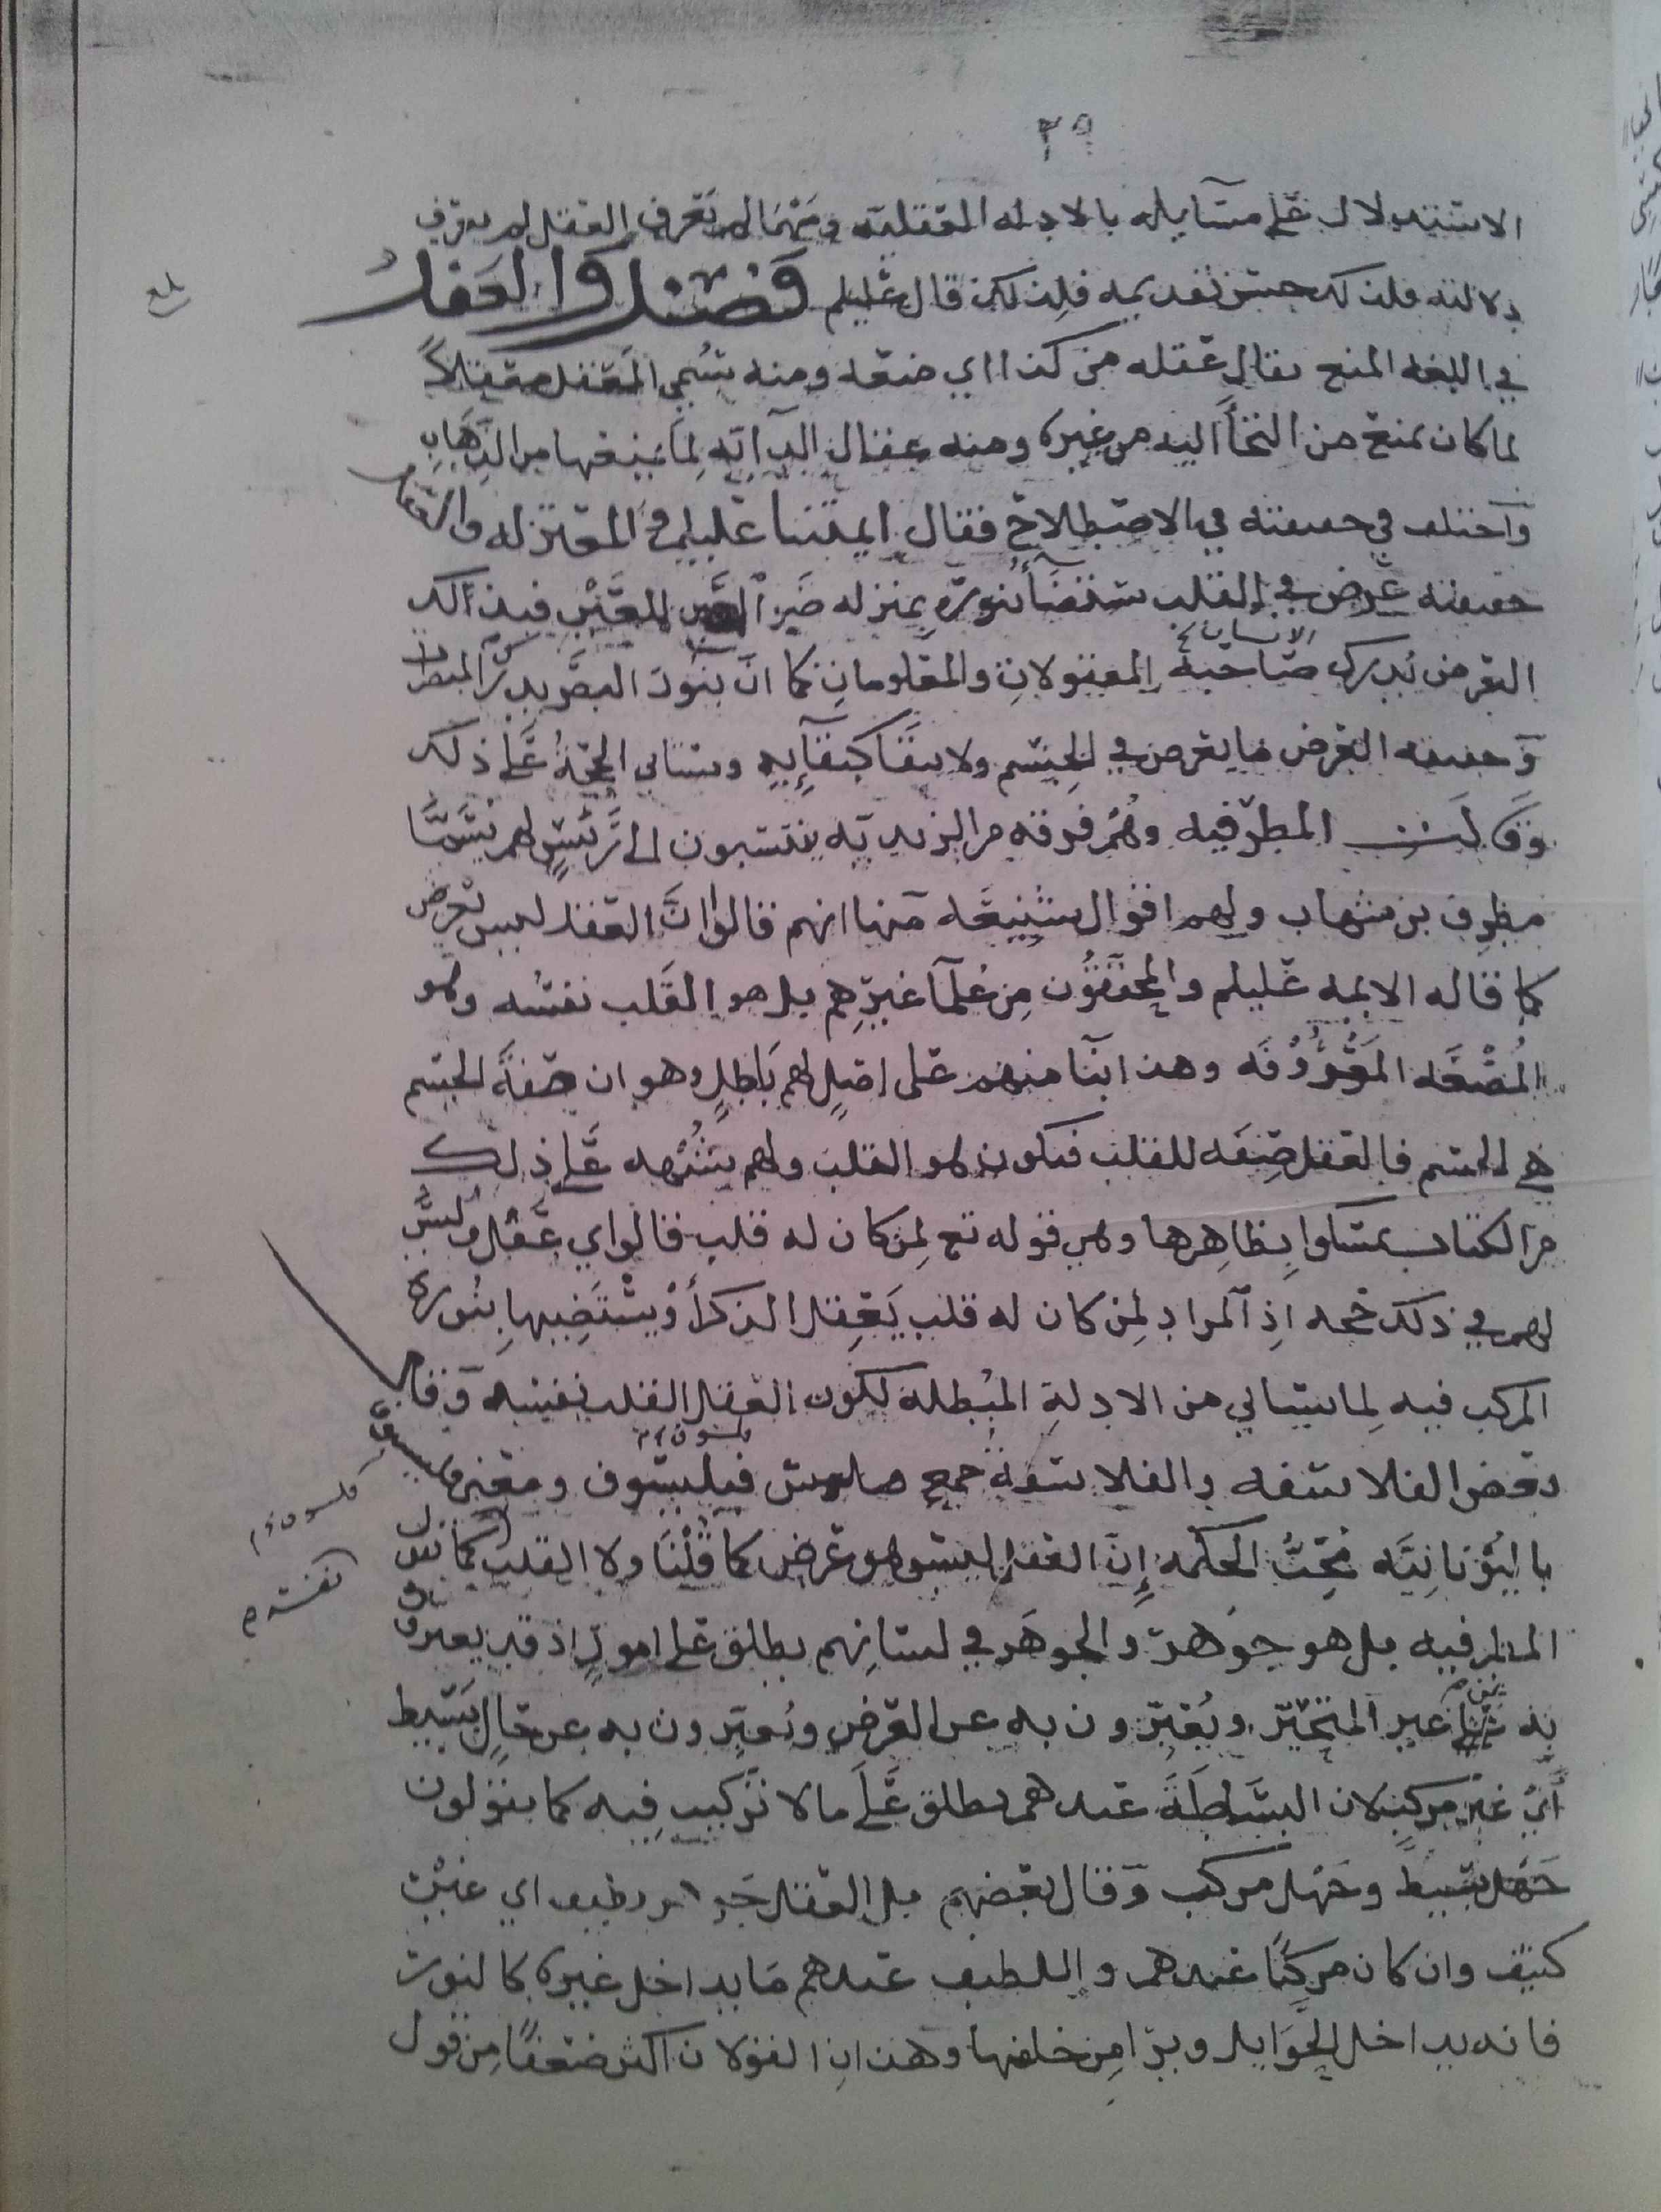 ٢٩
الاستدلال على مسايله بالادله العقليه ومهما لم تعرف العقل لم يعرف
دلالته فلذلك حسن تقديمه فلذلك قال عليلم فصل والعقل
بلغ
في اللغه المنع يقال عقله من كذا اي منعه ومنه سُمي المعقل معقلاً
لما كان يمنع من التجأ اليه من غيره ومنه عقال الدابه لِما يمنعها من الذهاب
واختلف في حقيقته في الاصطلاح فقال ايمتنا عليلم والمعتزله والعقل
حقيقته عرض في القلب يستضآ بنوره بمنزله العين فبذالك
العرض يُدرك صاحبه الانسان المعقولات والمعلومات كما انّ بنور البصر يدرك المبصرات
وحقيقه العرض ما يعرض في الجسم ولا يبقا كبقآيه وستاتي الحجة على ذلك
وقالت المطرفيه وهُم فرقه من الزيديه ينتسبون الى رئيسٍ لهم يسمّا
مطرف بن شهاب ولهم اقوال شنيعه منها انهم قالوا انّ العقل ليس بعرض
كما قاله الايمه عليلم والمحققون مِن عُلمآ غيرِهم بل هو القلب نفسُه وهو
المُضْغَه المَعْرُوْفَه وهذا بنآ منهم على اصلٍ لهم باطلٍ وهو ان صفةَ الجسم
هي الجسم فالعقل صِفَه للقلب فيكون هو القلب ولهم شُبْهه على ذلك
من الكتاب تمسكوا بِظاهِرها وهي قوله تع لِمن كان له قلب قالوا اي عَقْل وليسَ
لهم في ذلك حجه اذِ المراد لِمن كان له قلب يَعْقِل الذكر أوْ يستضِي بِنُورِه
المركب فيه لِما سياتي من الادلةِ المُبْطله لكون العقل القلب نفسه وَقال
بعض الفلاسفه والفلاسفةُ جمع فيلسوف ومعنى فيلسوف
فلسوف
باليُوْنانِيَّه مُحِبُّ الحكمه إِنّ العقل ليس هو عرض كما قُلْنَا ولا القلب كما تقول
نفسه
المطرفيه بل هو جوهر والجوهر في لسانِهم يطلق على امورٍ اذ قد يعبرون
به عن غير المتحيّز ويُعَبّرون به عن العرض ويُعبّرون به عن حالٍ بَسيط
أيْ غيْر مركبٍ لان البسَاطَةَ عندهم يطلق على ما لا تركيب فِيه كما يقولون
جَهْل بَسِيط وجَهْل مركب وَقال بعضهم بل العقل جوهر لطيف اي غيْر
كثيف وان كان مركبًا عندهم واللطيف عندهم مَا يداخل غيره كالنور
فانه يداخل الحَوايل ويرا مِن خلفها وهذانِ القولان اكثر ضعفًا مِن قول